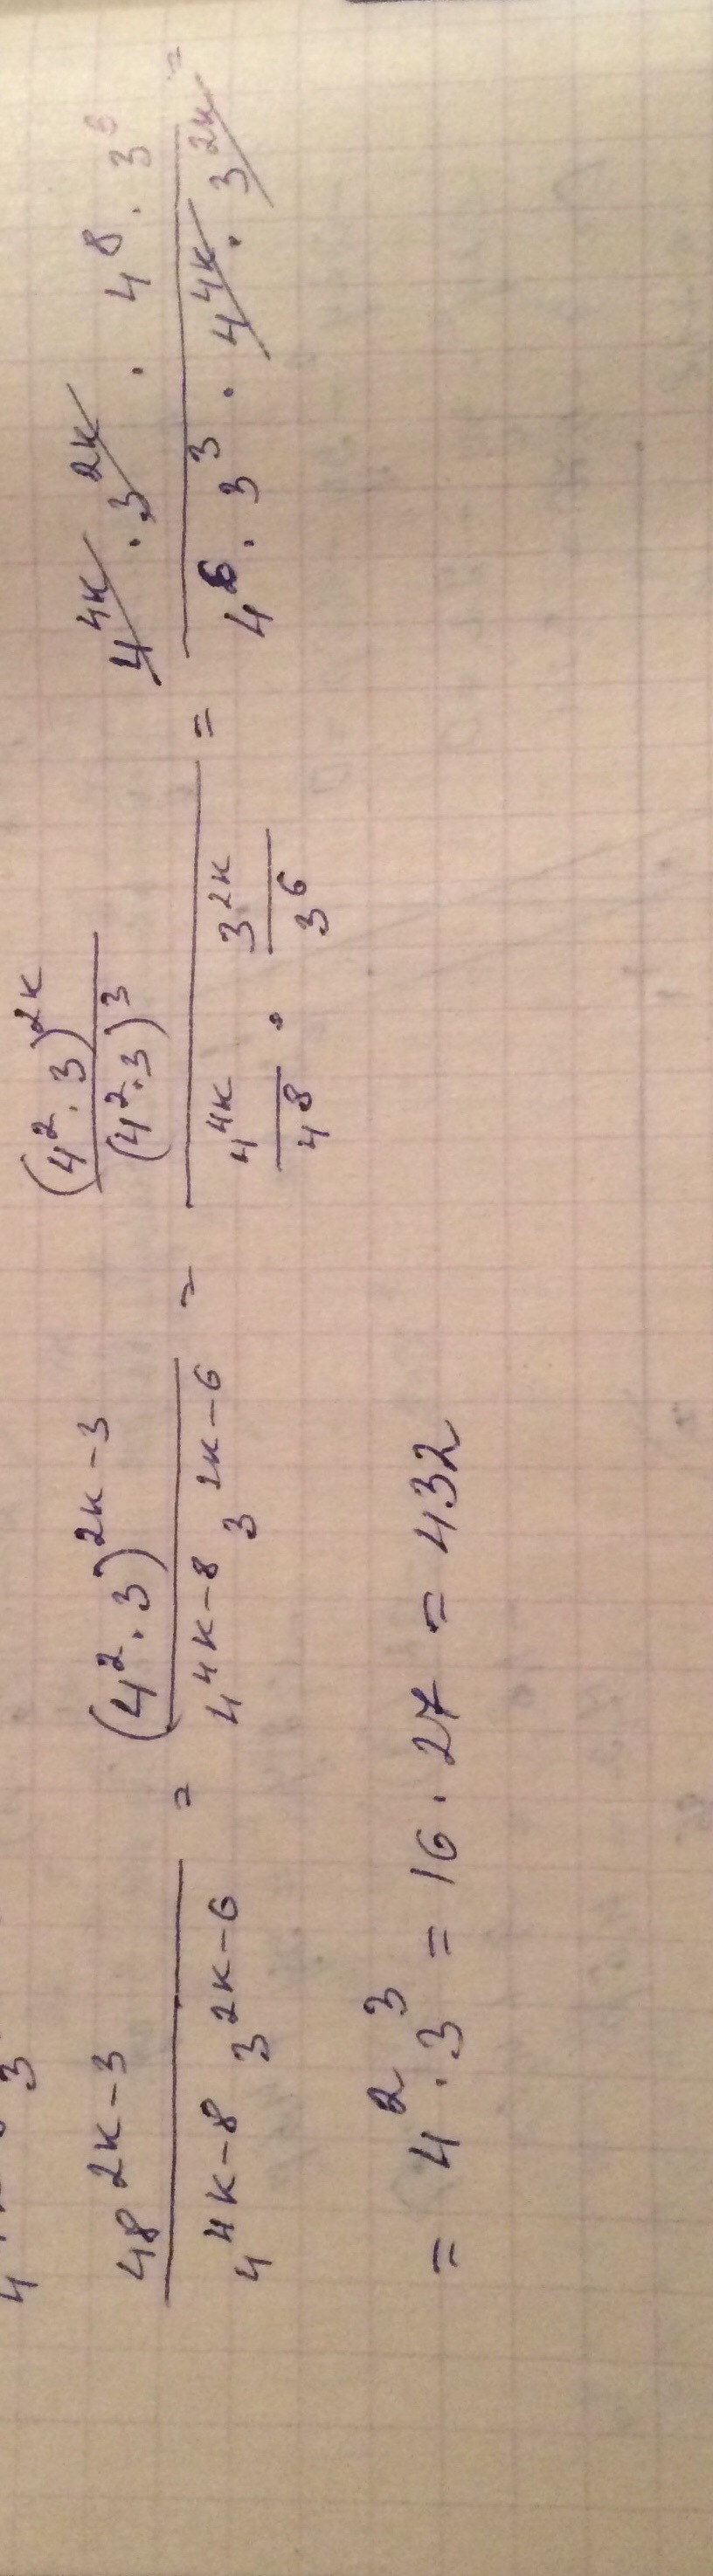 4 3
\frac{48^{2к-3}}{4^{4к-8} 3^{2к-6}} = \frac{(4^2 · 3)^{2к-3}}{4^{4к-8} 3^{2к-6}} = \frac{\frac{(4^2 · 3)^{2к}}{(4^2 · 3)^3}}{\frac{4^{4к}}{4^8} · \frac{3^{2к}}{3^6}} = \frac{4^{4к} · 3^{2к} · 4^8 · 3^6}{4^6 · 3^3 · 4^{4к} · 3^{2к}} =
= 4^2 · 3^3 = 16 · 27 = 432